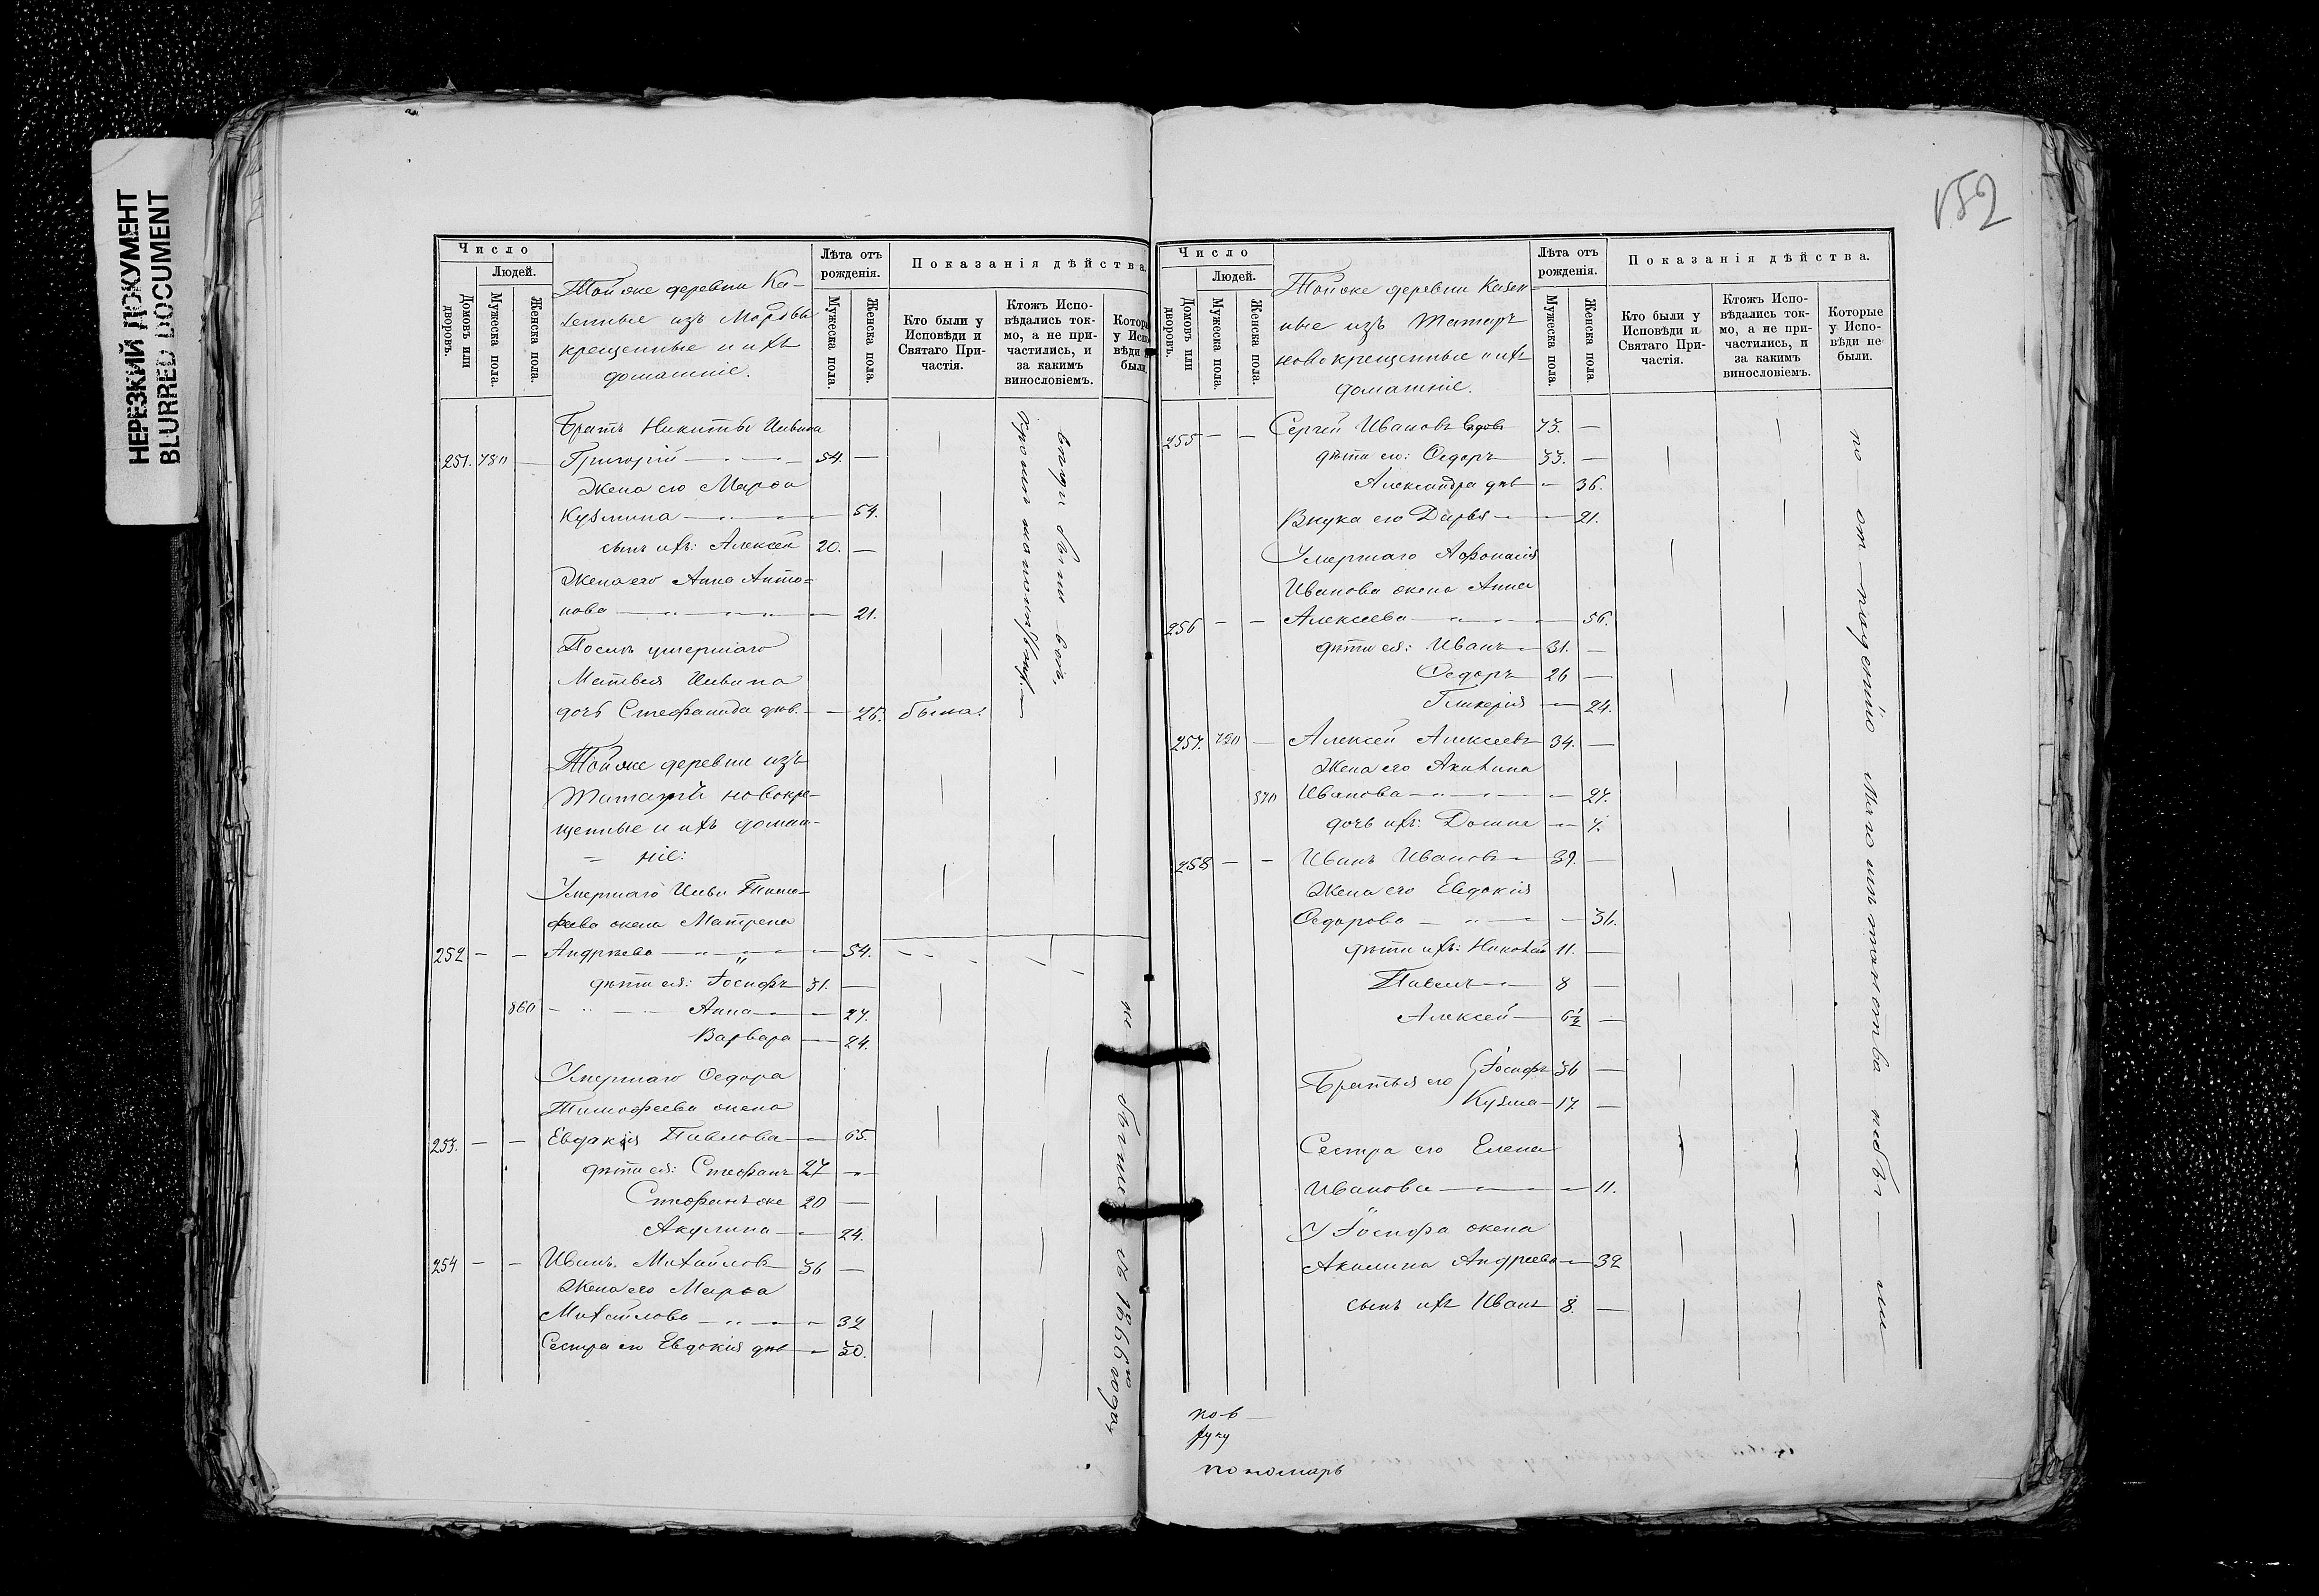 НЕРЕЗКИЙ ДОКУМЕНТ
BLURRED DOCUMENT
Число
Людей.
Домовъ или дворовъ.
Мужеска пола.
Женска пола.
Тойже деревни Ка-
зенные изъ Мордвы
крещенные и ихъ
домашніе.
Лѣта отъ рожденія.
Мужеска пола.
Женска пола.
Показанія дѣйства.
Кто были у Исповѣди и Святаго При-частія.
Ктожъ Испо-вѣдались ток-мо, а не при-частились, и за какимъ винословіемъ.
Братъ Никиты
251. 780 — Григорій — 54. —
Жена его Марѳа
Кузмина — 54.
сынъ ихъ: Алексѣй 20. —
Жена его Анна Анто=
нова — 21.
умершаго
Матвея
дочь Стефанида дѣв. — 25. была.
Тойже деревни изъ
Татаръ новокре-
щенные и ихъ домаш-
= ніе:
Умершаго Тимо-
феева жена Матрена
252 — — Андреева — 54.
дѣти ея: Іосифъ 31. —
860 — Анна — 27.
Варвара — 24.
Умершаго Ѳедора
Тимофеева жена
253. — — Евдокія Павлова — 65.
дѣти ея: Стефанъ 27 —
Стефанъ же 20 —
Акулина — 24.
254 — — Иванъ Михайловъ 36 —
Жена его Марѳа
Михайлова — 32
Сестра его Евдокія дѣв — 50.
не были съ 1866го года
152
Число
Людей.
Домовъ или дворовъ.
Мужеска пола.
Женска пола.
Тойже деревни Казен
ные изъ Татаръ
новокрещенные и ихъ
домашніе.
Лѣта отъ рожденія.
Мужеска пола.
Женска пола.
Показанія дѣйства.
Кто были у Исповѣди и Святаго При-частія.
Ктожъ Испо-вѣдались ток-мо, а не при-частились, и за какимъ винословіемъ.
Которые у Испо-вѣди не были.
255 — — Сергей Ивановъ вдовъ 73. —
дѣти его: Ѳедоръ 33. —
Александра дѣв — 36.
Внука его Дарья — 21.
Умершаго Афонасія
Иванова жена Анна
256 — — Алексеева — 56.
дѣти ея: Иванъ 31. —
Ѳедоръ 26 —
Гликерія — 24.
257. 790 — Алексей Алексеевъ 34. —
Жена его
870 Иванова — 27.
дочь ихъ: Домна — 7.
258 — — Иванъ Ивановъ 39. —
Жена его Евдокія
Ѳедорова — 36.
дѣти ихъ: Николай 11. —
Павелъ 8 —
Алексей 6½ —
Братья его Іосифъ 36 —
Кузма 17 —
Сестра его Елена
Иванова — 11.
У Іосифа жена
Акилина Андреева — 32
сынъ ихъ Иванъ 8. —
по отлученію
пономарь